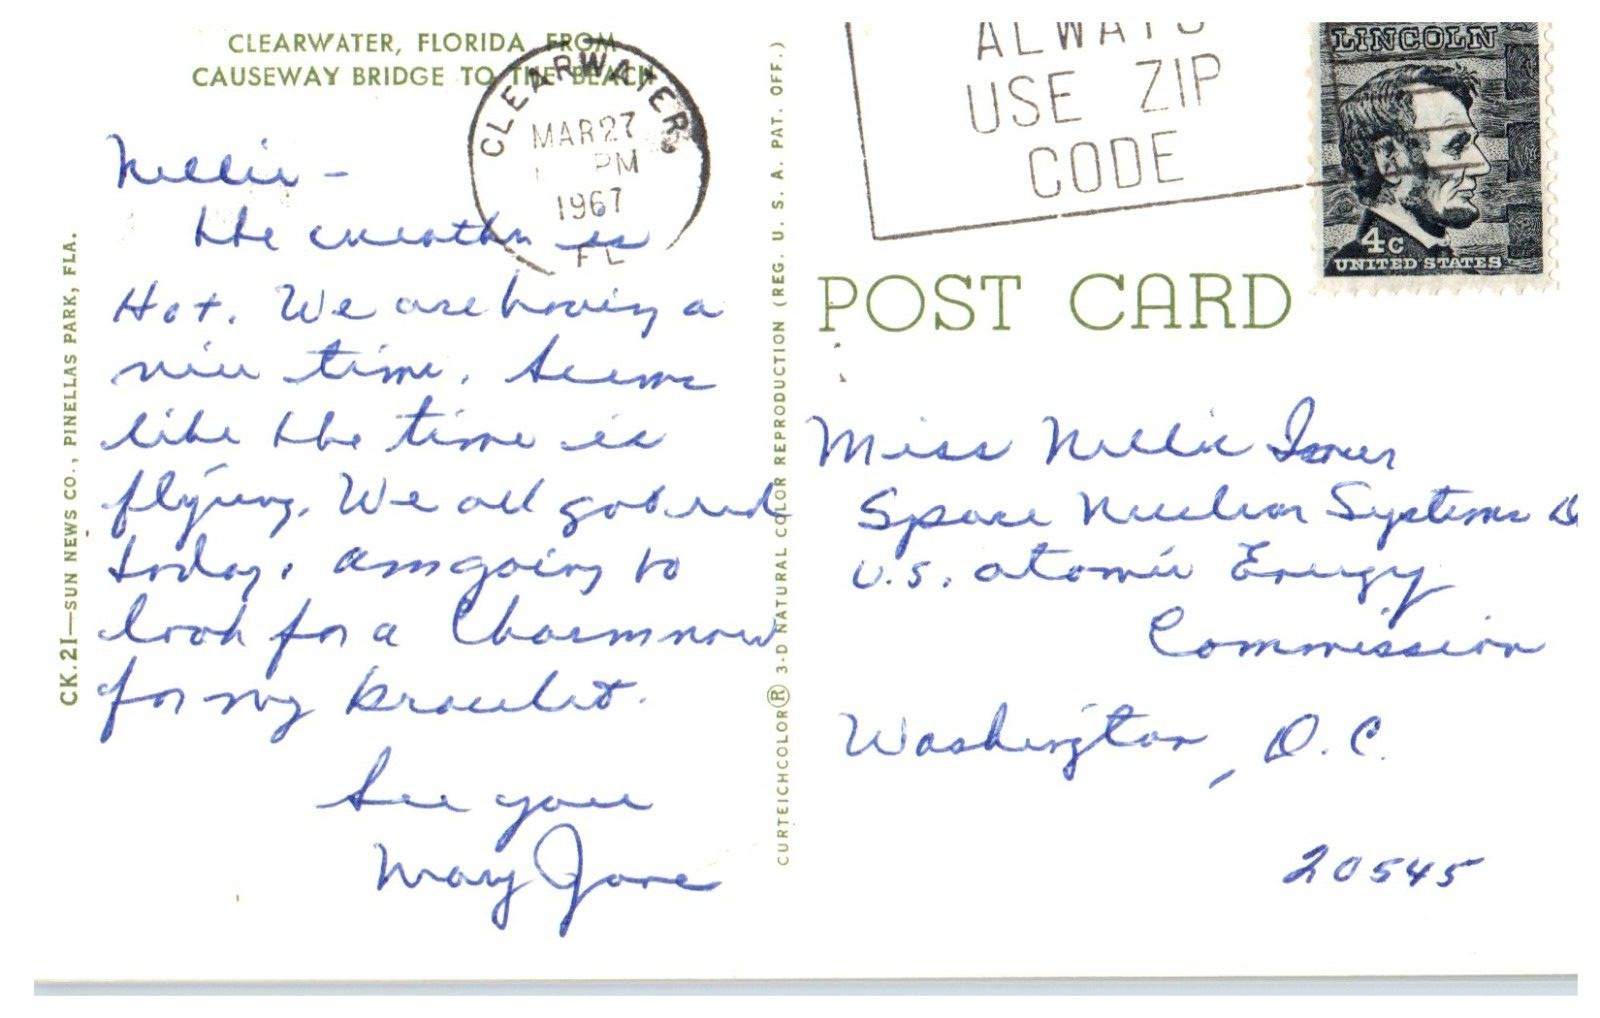 CLEARWATER, FLORIDA FROM
CAUSEWAY BRIDGE TO THE BEACH
CLEARWATER
MAR 27
PM
1967
FL
Nellie -
the weather is
Hot. We are having a
nice time. Seems
like the time is
flying. We all got red
today. Am going to
look for a Charm now
for my bracelet.
See you
Mary Jane
CK.21—SUN NEWS CO., PINELLAS PARK, FLA.
CURTEICHCOLOR® 3-D NATURAL COLOR REPRODUCTION (REG. U. S. A. PAT. OFF.)
ALWAYS
USE ZIP
CODE
LINCOLN
4c
UNITED STATES
POST CARD
Miss Nellie
Space Nuclear Systems
U.S. Atomic Energy
Commission
Washington, D.C.
20545